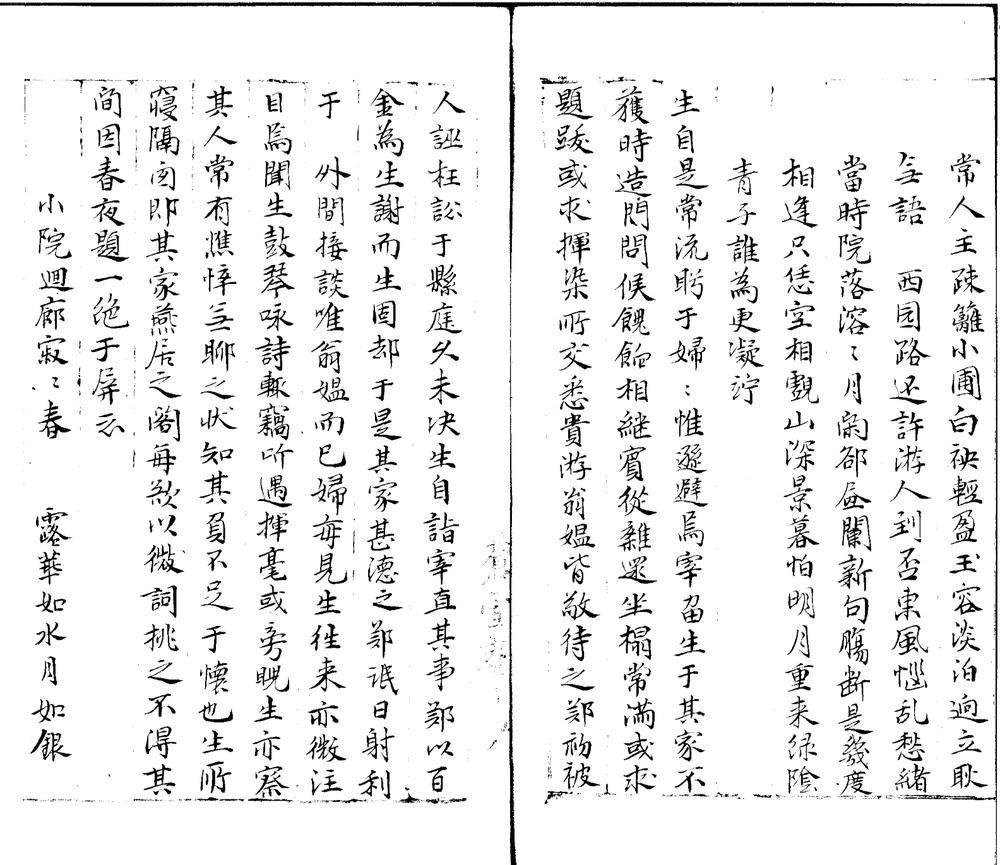 常人主疎籬小圃白袂輕盈玉容淡泊逈立耿
無語　西园路迅許游人到否東風惱乱愁緒
當時院落溶〻月闲郤昼闌新句腸断是幾度
相逢只恁空相覷山深景暮怕明月重来绿陰
青子誰為更凝竚
生自是常流眄于婦〻惟遜避焉宰畱生于其家不
獲時造門問候餽餉相継賓從雜遝坐榻常満或求
題跋或求揮染所交悉貴游翁媪皆敬待之郑初被
人誣枉訟于縣庭久未决生自詣宰直其事郑以百
金為生謝而生固却于是其家甚德之郑诋日射利
于　外間接談唯翁媪而已婦毎見生徃来亦微注
目焉聞生鼓琴咏詩輒竊听遇揮毫或旁睨生亦察
其人常有憔悴無聊之状知其夤不足于懷也生所
寝隔囱即其家燕居之閣每欲以微詞挑之不淂其
間因春夜題一绝于屏云
小院迴廊寂〻春　露華如水月如銀